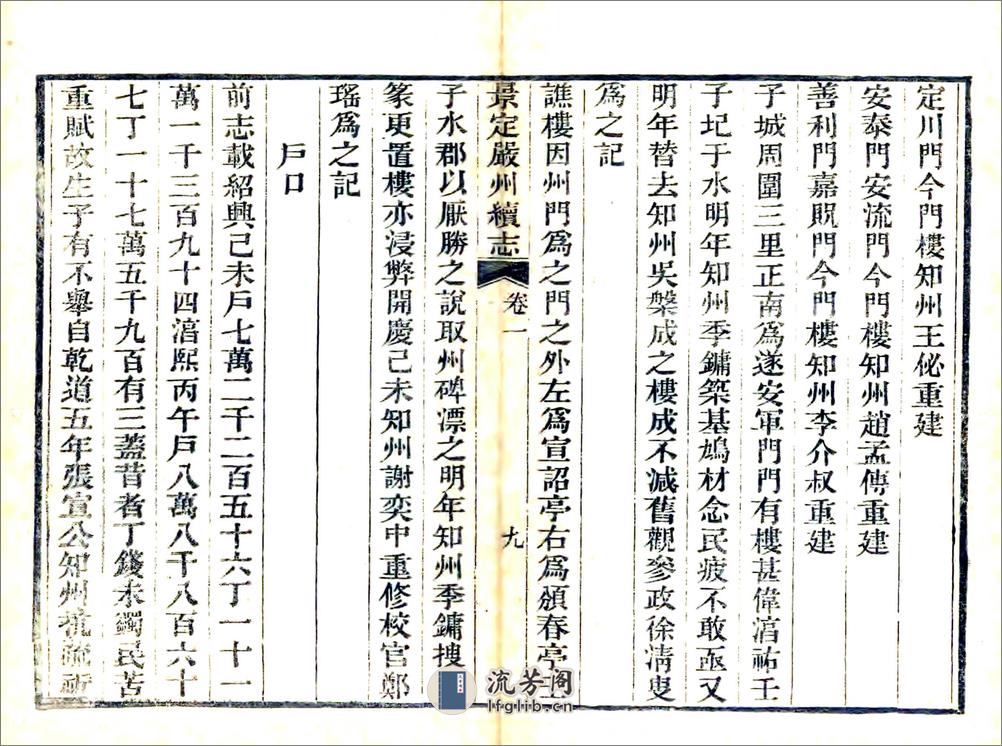 定川門今門樓知州王佖重建
安泰門安流門今門樓知州趙孟傳重建
善利門嘉貺門今門樓知州李介叔重建
子城周圍三里正南爲遂安軍門門有樓甚偉湻祐壬
子圮于水明年知州季鏞築基鳩材念民疲不敢亟又
明年替去知州吳槃成之樓成不減舊觀參政徐淸叟
爲之記
譙樓因州門爲之門之外左爲宣詔亭右爲頒春亭壬
景定嚴州續志 卷一 九
子水郡以厭勝之說取州碑漂之明年知州季鏞搜
篆更置樓亦浸弊開慶己未知州謝奕中重修校官鄭
瑤爲之記
戶口
前志載紹興己未戶七萬二千二百五十六丁一十一
萬一千三百九十四湻熙丙午戶八萬八千八百六十
七丁一十七萬五千九百有三蓋昔者丁錢未蠲民苦
重賦故生子有不舉自乾道五年張宣公知州抗疏祈
流芳阁
lfglib.cn